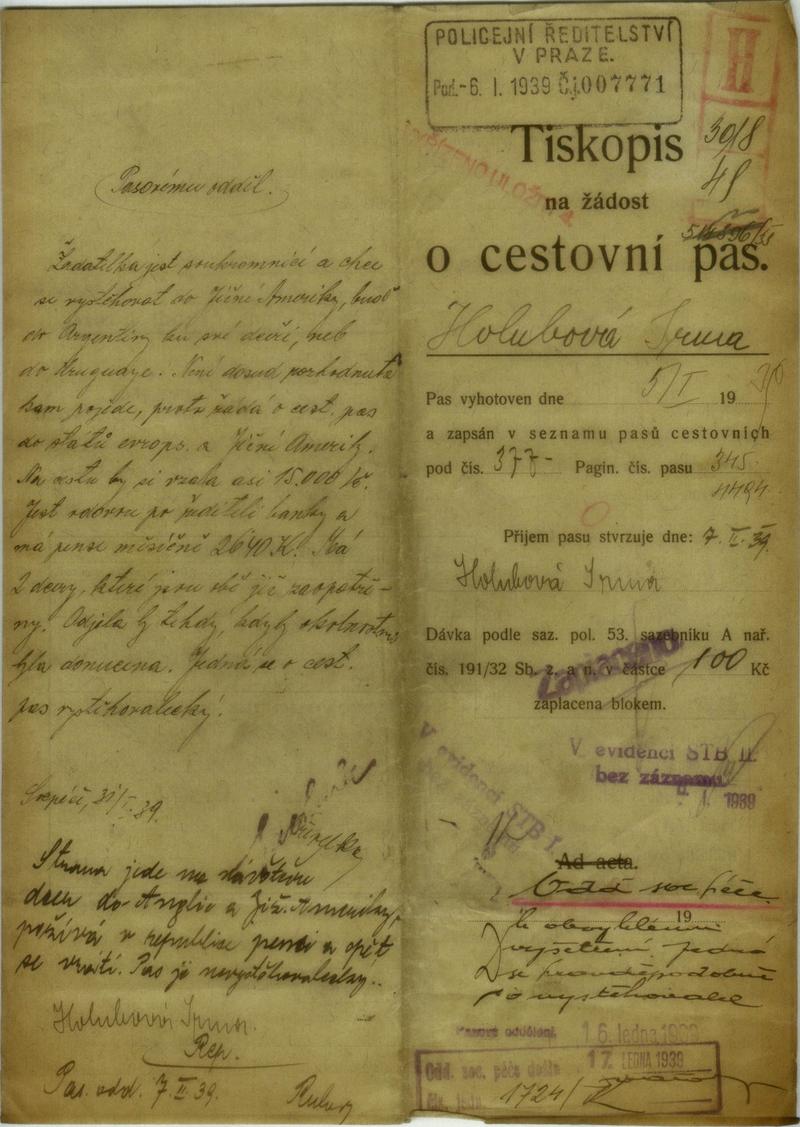 Pasovému oddíl.
Žadatelka jest soukromnicí a chce
se vystěhovat do Jižní Ameriky, buď
do Argentiny ku své dceři, neb
do Uruguaye. Není dosud rozhodnuta
kam pojede, proto žádá o cest. pas
do států evrops. a Jižní Ameriky.
Na cestu by si vzala asi 15.000 Kč.
Jest vdovou po řediteli banky a
má pensi měsíčně 2640 K. Má
2 dcery, které jsou obě již zaopatře-
ny. Odjela by tehdy, kdyby okolnostmi
byla donucena. Jedná se o cest.
pas vystěhovalecký.
31/I. 39.
Strana jede na návštěvu
dcer do Anglie a Již. Ameriky,
požívá v republice pensi a opět
se vrátí. Pas je nevystěhovalecky..
Holubová Irma.
Rep.
Pas. odd. 7.II.39.
POLICEJNÍ ŘEDITELSTVÍ
V PRAZE.
Pod.-6. I. 1939 Čj.007771
II
Tiskopis
30/8
48
na žádost
o cestovní pas.
Holubová Irma
Pas vyhotoven dne 5/I 19 39
a zapsán v seznamu pasů cestovních
pod čís. 377- Pagin. čís. pasu 345
4494
Přijem pasu stvrzuje dne: 7.II.39.
Holubová Irma
Dávka podle saz. pol. 53. sazebníku A nař.
čís. 191/32 Sb. z. a n. v částce 100 Kč
Zaplaceno
zaplacena blokem.
V evidenci STB II.
bez záznamu
1939
V evidenci STB I.
Ad acta.
Odd soc péče
19
k obvyklému
vyšetření. Jedná
se pravděpodobně
o vystěhovalce
Pasové oddělení. 16. ledna 1939
Odd. soc. péče došlo 17. LEDNA 1939
Čís. jedn. 1724/